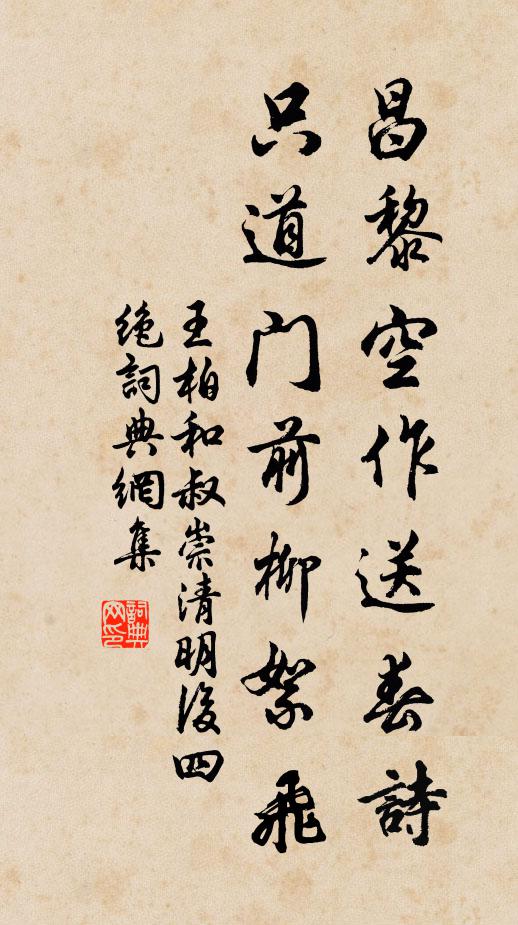 昌黎空作送春詩
只道門前柳絮飛
王柏和叔崇清明後四
絶詞典網集
詞典网印